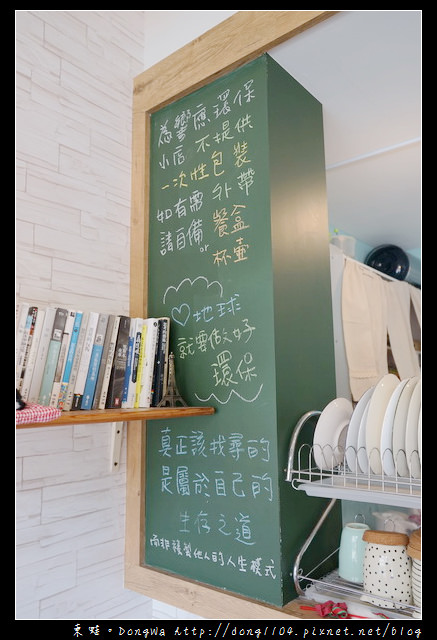 為響應環保
小店 不提供
一次性包裝
如有需 外帶
請自備 餐盒
or 杯壺
♡地球
就要做好
環保
真正該找尋的
是屬於自己的
生存之道
而非複製他人的人生模式
東蛙。DongWa http://dong1104.pixnet.net/blog